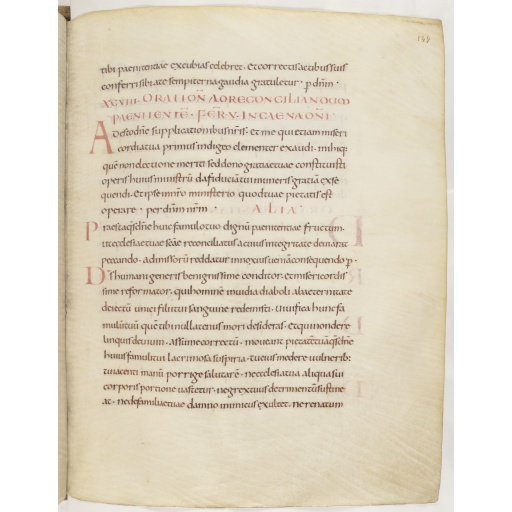 tibi paenitentiae excubias celebret · et correctis actibus suis
conferri sibi a te sempiterna gaudia gratuletur · p dnm ·
XCVIII · ORATION AD RECONCILIANDUM
PAENITENTE · FER V · IN CAENA DNI
Adesto dne supplicationibus nris · et me qui etiam miseri
cordia tua primus indigeo clementer exaudi · mihiq;
quē non electione meriti sed dono gratiae tuae constituisti
operis huius ministrū da fiduciā tui muneris gratiā exse
quendi · et ipse in nro ministerio quod tuae pietatis est
operare · per dnm nrm · ALIA
Praesta qs dne huic famulo tuo dignū paenitentiae fructum ·
ut ecclesiae tuae scae reconciliatus a cuius integritate deviarat
peccando · admissorū reddatur innoxius veniā consequendo p ·
Ds humani generis benignissime conditor · et misericordis
sime reformator · qui hominē invidia diaboli ab aeternitate
deiectū unici filii tui sanguine redemisti · vivifica hunc fa
mulū tuū quē tibi nullatenus mori desideras · et qui non dere
linquis devium · assume correctū · moveant pietatē tuā qs dne
huius famuli tui lacrimosa suspiria · tu eius medere vulnerib:
tu iacenti manū porrige salutarē · ne ecclesia tua aliqua sui
corporis portione vastetur · ne grex tuus detrimentū sustine
at · ne de familiae tuae damno inimicus exultet · ne renatum